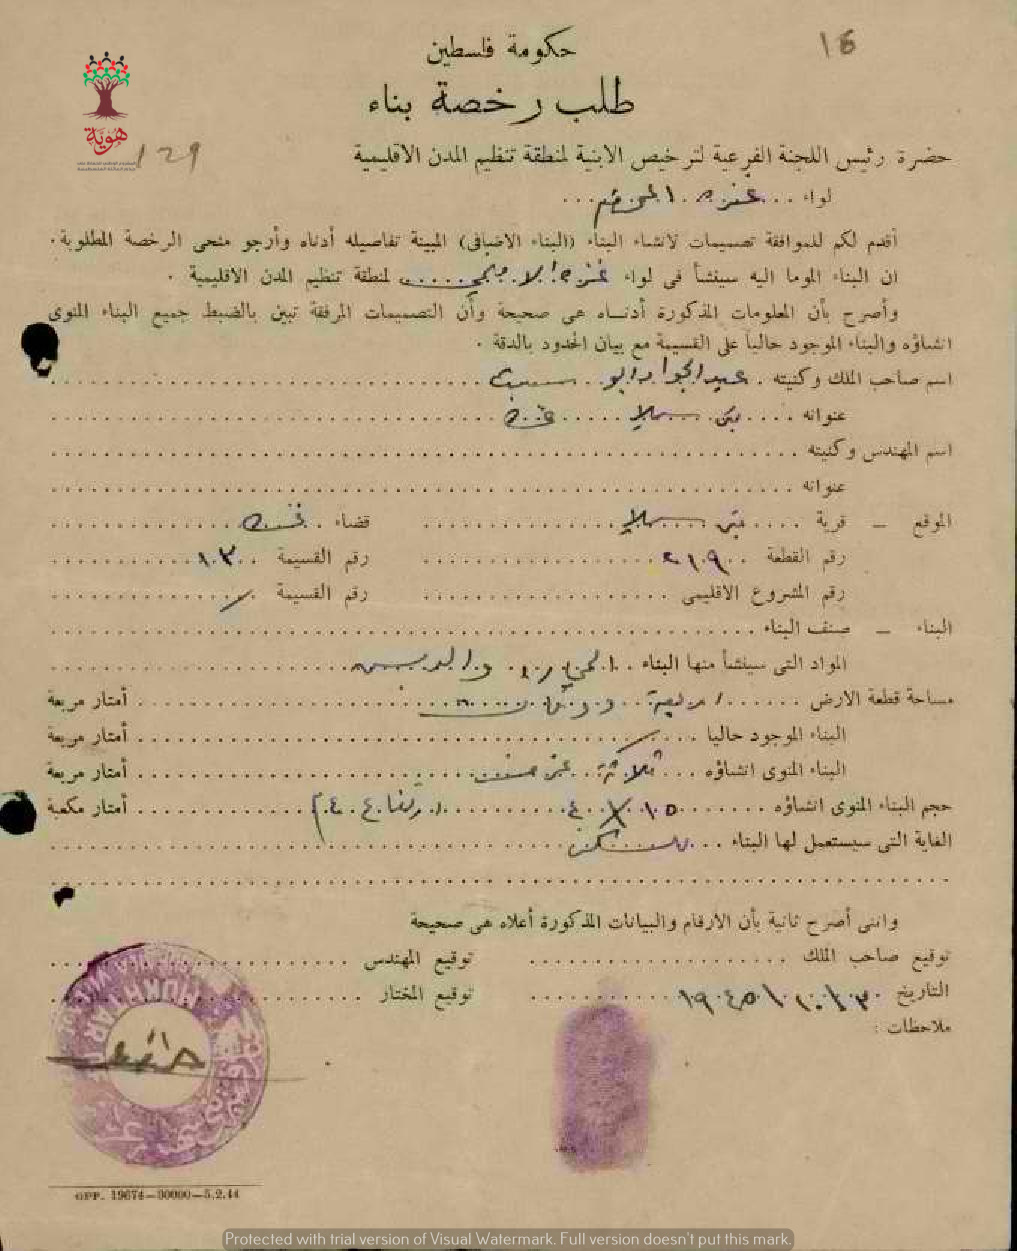 16
حكومة فلسطين
طلب رخصة بناء
هوية
129
حضرة رئيس اللجنة الفرعية لترخيص الابنية لمنطقة تنظيم المدن الاقليمية
لواء ... غزه ...
أقدم لكم للموافقة تصميمات لانشاء البناء (البناء الاضافى) المبينة تفاصيله أدناه وأرجو منحى الرخصة المطلوبة .
ان البناء الموما اليه سينشأ فى لواء غزه ... لمنطقة تنظيم المدن الاقليمية .
وأصرح بأن المعلومات المذكورة أدنـاه هى صحيحة وأن التصميمات المرفقة تبين بالضبط جميع البناء المنوى
انشاؤه والبناء الموجود حالياً على القسيمة مع بيان الحدود بالدقة .
اسم صاحب الملك وكنيته . عبد الجواد ابو ...
عنوانه .... بيت ... غزه ...
اسم المهندس وكنيته ...
عنوانه ...
الموقع – قرية .... بيت ... قضاء . غزه ...
رقم القطعة .. ٢١٩ ... رقم القسيمة .. ١٣ ...
رقم المشروع الاقليمى ... رقم القسيمة .. / ...
البناء – صنف البناء ...
المواد التى سينشأ منها البناء .. الحجاره والدبس ...
مساحة قطعة الارض ...... اربعة دونمات ... أمتار مربعة
البناء الموجود حاليا ... / ... أمتار مربعة
البناء المنوى انشاؤه ... ثلاثة غرف ... أمتار مربعة
حجم البناء المنوى انشاؤه ... ارتفاع ٤ م ... أمتار مكعبة
الغاية التى سيستعمل لها البناء ... للسكن ...
وانني أصرح ثانية بأن الارقام والبيانات المذكورة أعلاه هى صحيحة
توقيع صاحب الملك ... توقيع المهندس ...
التاريخ ٣٠/١٠/١٩٤٥ ... توقيع المختار ...
ملاحظات :
MUKHTAR
GPP. 19674—30000—5.2.44
Protected with trial version of Visual Watermark. Full version doesn't put this mark.